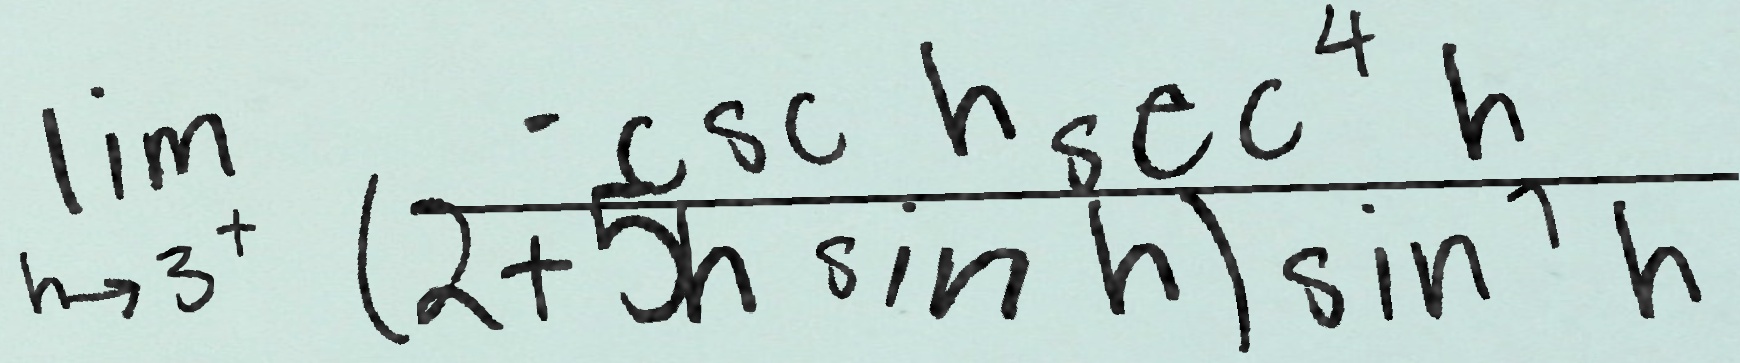 \lim_{h \to 3^+} \frac{-\csc h \sec^4 h}{(2+5h \sin h) \sin^7 h}